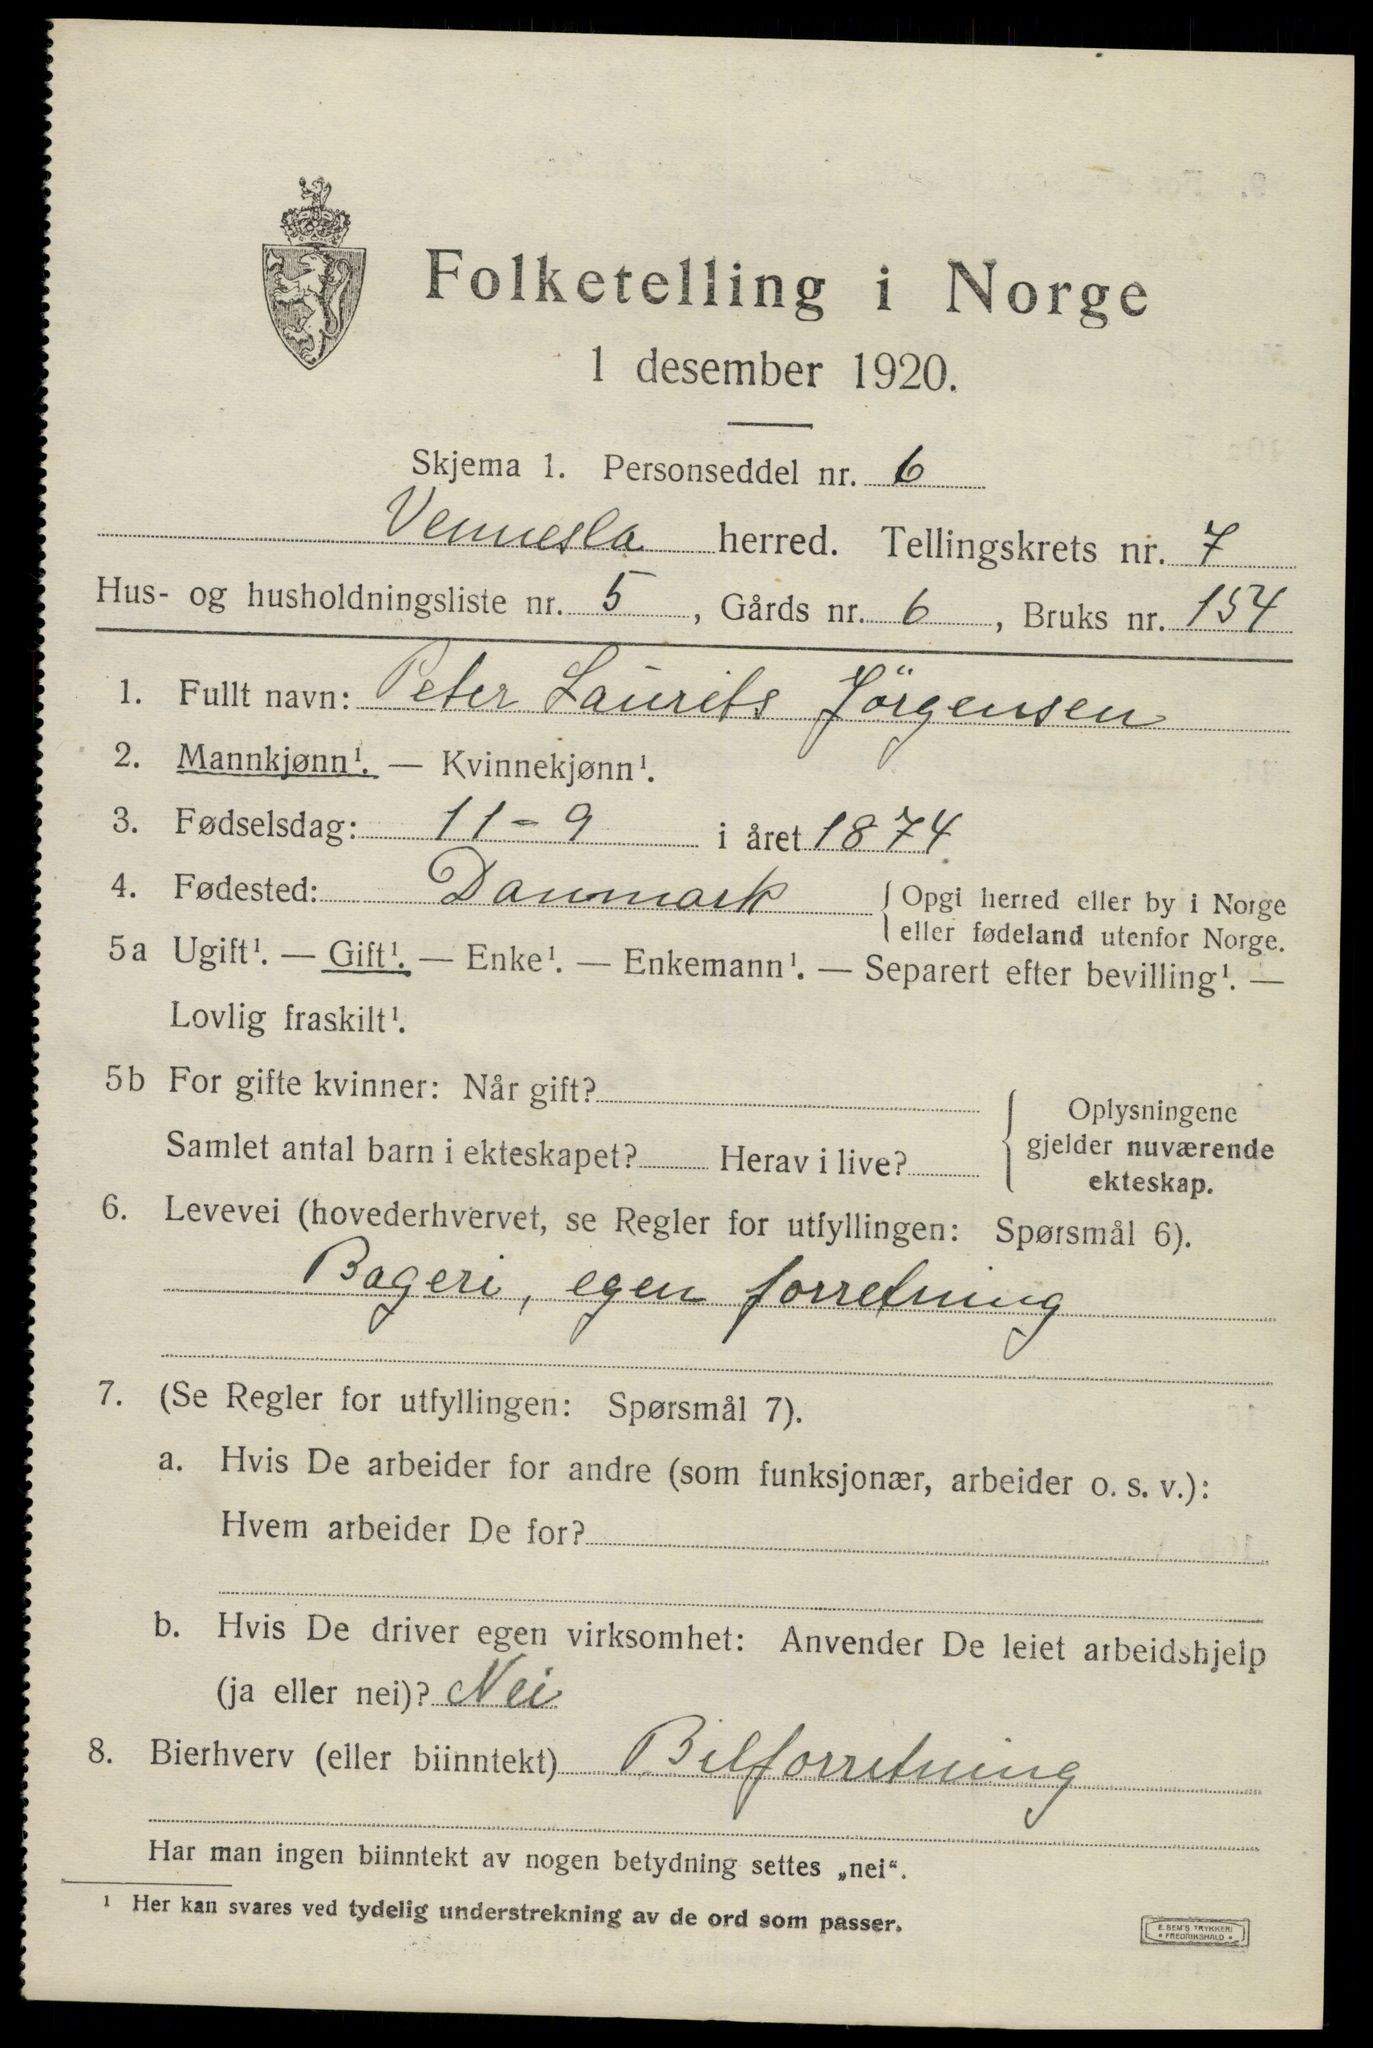 Folketelling i Norge
1 desember 1920.
Skjema 1. Personseddel nr. 6
Vennesla herred. Tellingskrets nr. 7
Hus- og husholdningsliste nr. 5, Gårds nr. 6, Bruks nr. 154
1. Fullt navn: Peter Laurits Jörgensen
2. Mannkjønn¹. — Kvinnekjønn¹.
3. Fødselsdag: 11-9 i året 1874
4. Fødested: Danmark { Opgi herred eller by i Norge
eller fødeland utenfor Norge.
5a Ugift¹. — Gift¹. — Enke¹. — Enkemann¹. — Separert efter bevilling¹. —
Lovlig fraskilt¹.
5b For gifte kvinner: Når gift?
Samlet antal barn i ekteskapet? Herav i live?
Oplysningene
gjelder nuværende
ekteskap.
6. Levevei (hovederhvervet, se Regler for utfyllingen: Spørsmål 6).
Bageri, egen forretning
7. (Se Regler for utfyllingen: Spørsmål 7).
a. Hvis De arbeider for andre (som funksjonær, arbeider o. s. v.):
Hvem arbeider De for?
b. Hvis De driver egen virksomhet: Anvender De leiet arbeidshjelp
(ja eller nei)? Nei
8. Bierhverv (eller biinntekt) Bilforretning
Har man ingen biinntekt av nogen betydning settes „nei“.
¹ Her kan svares ved tydelig understrekning av de ord som passer.
E. SEM'S TRYKKERI
• FREDRIKSHALD •